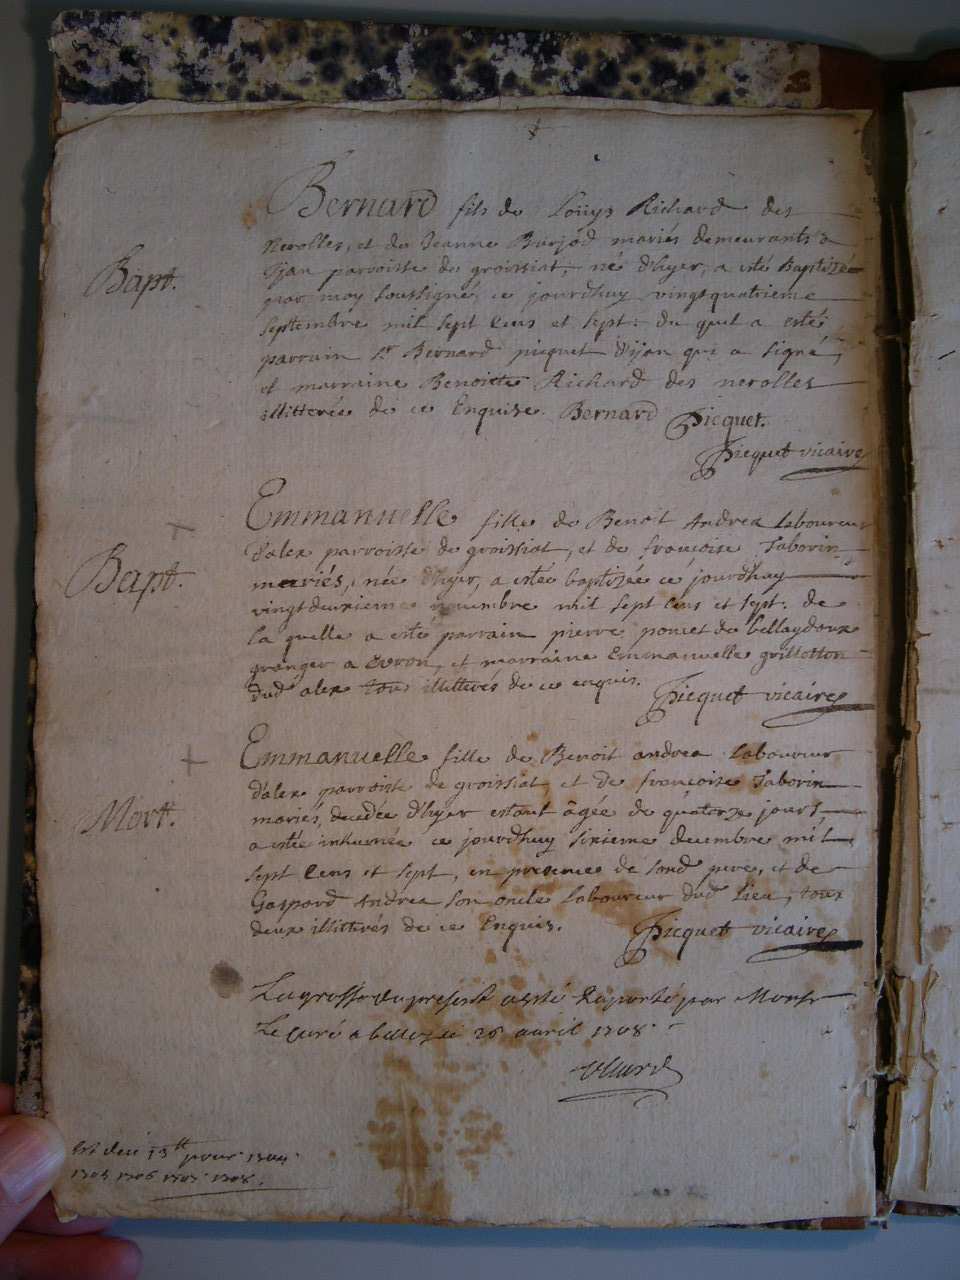 Bapt.
Bernard fils de Loüys Richard des
Nerolles, et de Jeanne Burjod mariés demeurants a
Ijan parroisse de groissiat, né d'hyer, a esté Baptizé
par moy soussigné, ce jourdhuy vingtquatrieme
septembre mil sept cens et sept: du quel a esté
parrain sr Bernard picquet d'ijan qui a signé,
et marraine Benoitte Richard des nerolles
illitterée de ce Enquise. Bernard Picquet.
Picquet vicaire
Bapt.
Emmanuelle fille de Benoit Andrea laboureur
d'alex parroisse de groissiat, et de françoise Taborin
mariés, née d'hyer, a esté baptizée ce jourdhuy
vingtdeuxieme novembre mil sept cens et sept. de
la quelle a esté parrain pierre poncet de bellaydoux
granger a Evron, et marraine Emmanuelle grillotton
dud alex tous illitterés de ce enquis. Picquet vicaire
Mort.
Emmanuelle fille de Benoit andrea laboureur
d'alex parroisse de groissiat et de françoise Taborin
mariés, decedée d'hyer estant âgée de quatorze jours,
a esté inhumée ce jourdhuy sixieme decembre mil
sept cens et sept, en presence de sond pere, et de
Gaspard Andrea son oncle laboureur dud lieu, tous
deux illitterés de ce Enquis. Picquet vicaire
La grosse du present a esté Raporté par Monsr
Le Curé a belley le 28 avril 1708.
pour 1704.
1705 1706 1707 1708.